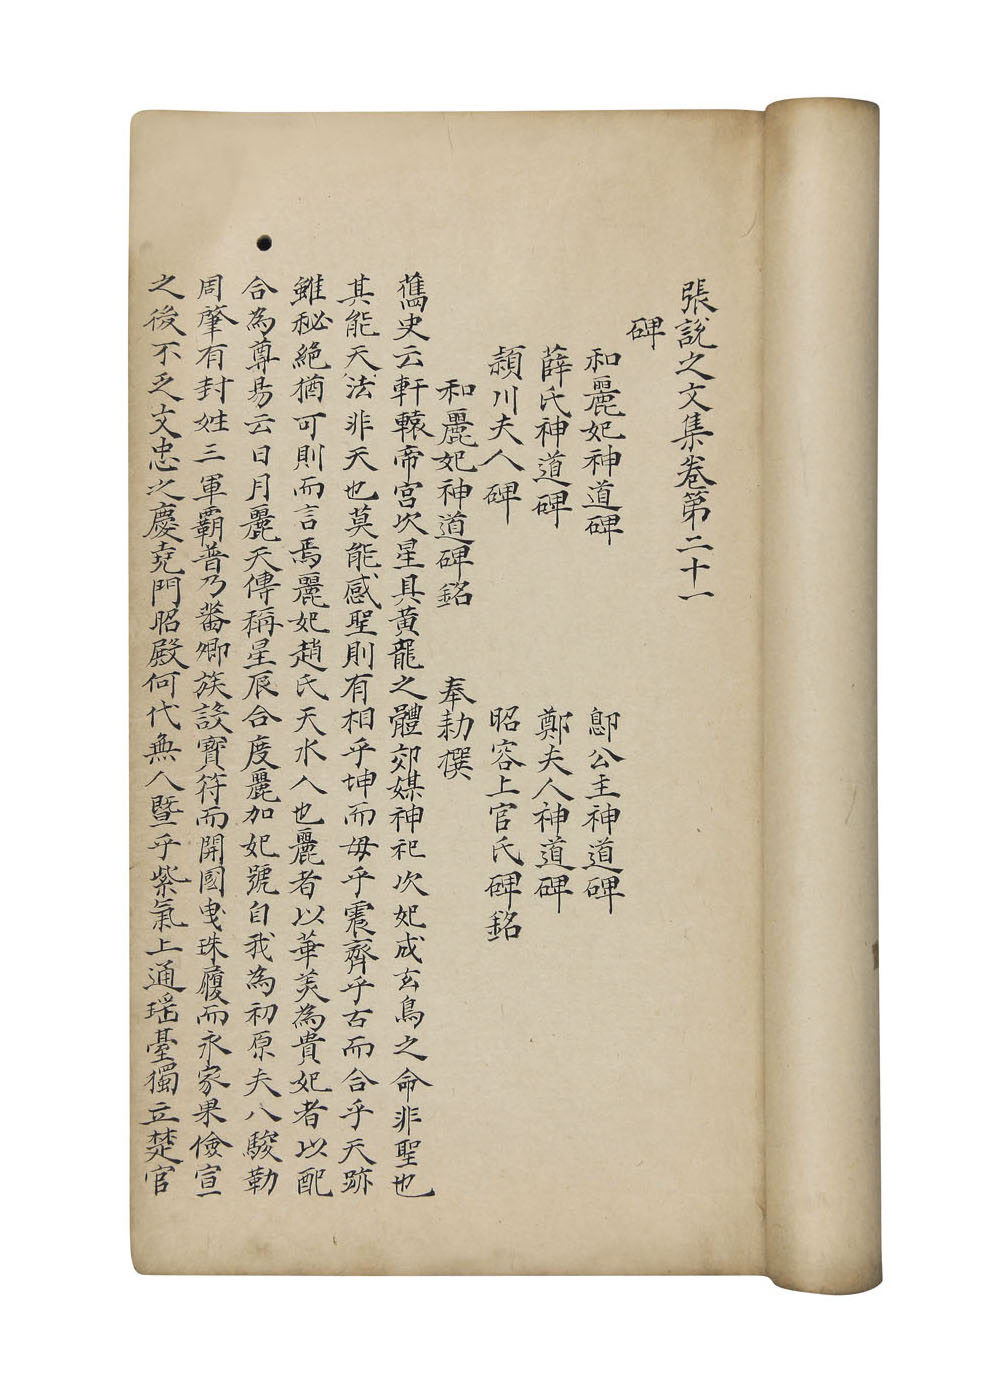 張說之文集卷第二十一
碑
和麗妃神道碑 鄎公主神道碑
薛氏神道碑 鄭夫人神道碑
潁川夫人碑 昭容上官氏碑銘
和麗妃神道碑銘 奉勑撰
舊史云軒轅帝宮次星具黃龍之體郊媒神祀次妃成玄鳥之命非聖也
其能天法非天也莫能感聖則有相乎坤而毋乎震齊乎古而合乎天跡
雖秘絶猶可則而言焉麗妃趙氏天水人也麗者以華美為貴妃者以配
合為尊易云日月麗天傳稱星辰合度麗加妃號自我為初原夫八駿勒
周肇有封姓三軍霸晉乃蕃卿族設寶符而開國曳珠履而永家果儉宣
之後不乏文忠之慶堯門昭殿何代無人暨乎紫氣上通瑤臺獨立楚官